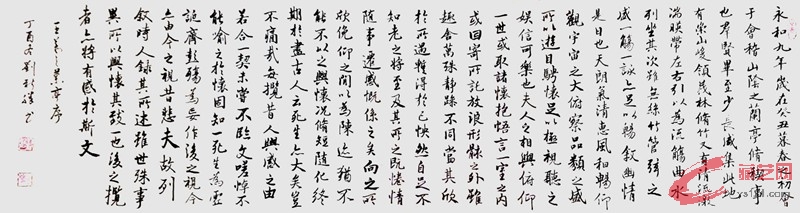 永和九年歲在癸丑暮春之初會
于會稽山陰之蘭亭脩稧事
也羣賢畢至少長咸集此地
有崇山峻領茂林脩竹又有清流激
湍暎帶左右引以為流觴曲水
列坐其次雖無絲竹管弦之
盛一觴一詠亦足以暢敘幽情
是日也天朗氣清惠風和暢仰
觀宇宙之大俯察品類之盛
所以遊目騁懷足以極視聽之
娛信可樂也夫人之相與俯仰
一世或取諸懷抱悟言一室之內
或因寄所託放浪形骸之外雖
趣舍萬殊靜躁不同當其欣
於所遇暫得於己怏然自足不
知老之將至及其所之既惓情
隨事遷感慨係之矣向之所
欣俛仰之間以為陳迹猶不
能不以之興懷況脩短隨化終
期於盡古人云死生亦大矣豈
不痛哉每攬昔人興感之由
若合一契未嘗不臨文嗟悼不
能喻之於懷固知一死生為虛
誕齊彭殤為妄作後之視今
亦由今之視昔悲夫故列
敘時人錄其所述雖世殊事
異所以興懷其致一也後之攬
者亦將有感於斯文
王羲之蘭亭序
丁酉冬劉